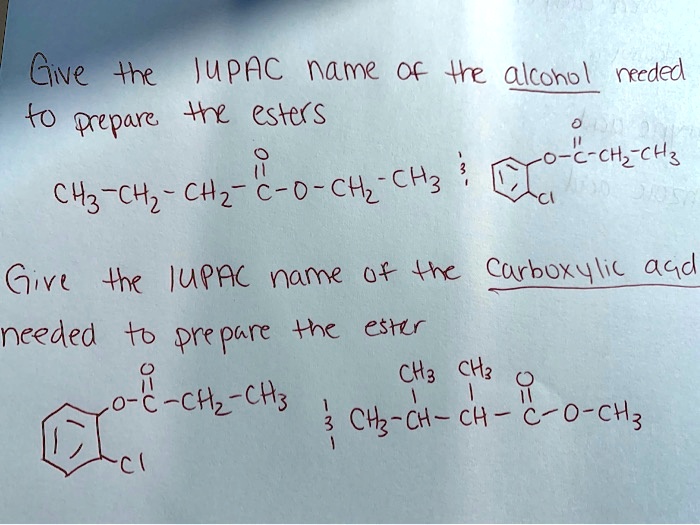 Give the IUPAC name of the alcohol needed
to prepare the esters
O
||
CH3-CH2-CH2-C-O-CH2-CH3 ; O
||
O-C-CH2-CH3
Cl
Give the IUPAC name of the carboxylic acid
needed to prepare the ester
O
||
O-C-CH2-CH3
Cl
; CH3 CH3 O
| | ||
CH3-CH-CH-C-O-CH3